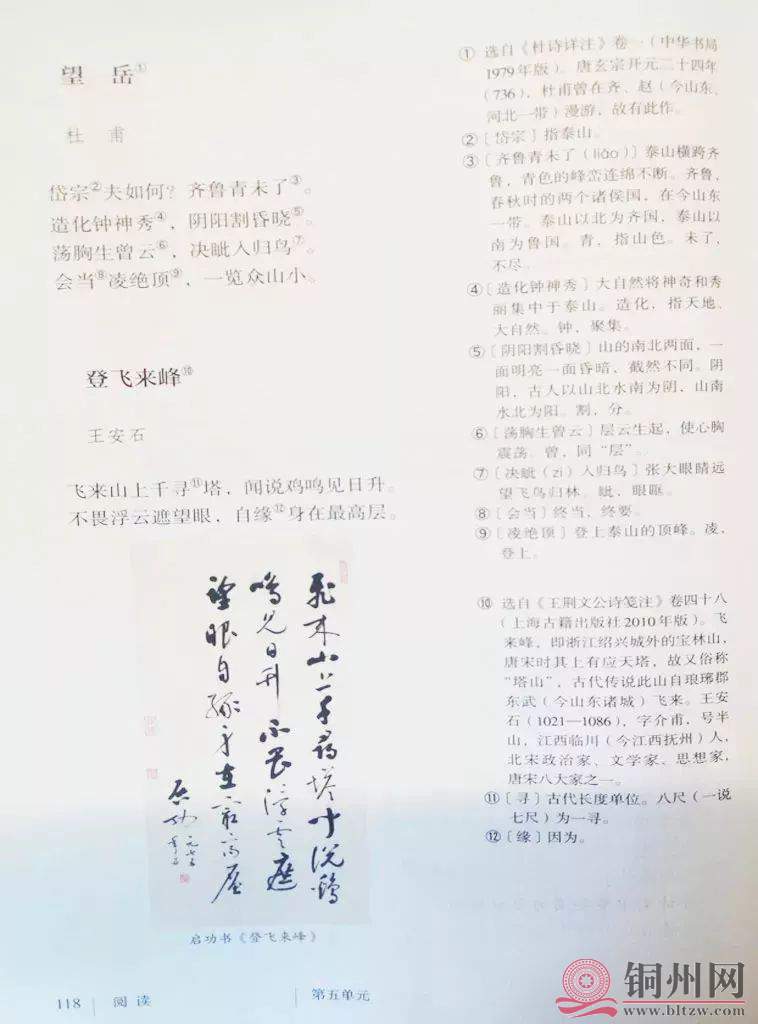 望 岳①
杜 甫
岱宗②夫如何？齐鲁青未了③。
造化钟神秀④，阴阳割昏晓⑤。
荡胸生曾云⑥，决眦入归鸟⑦。
会当⑧凌绝顶⑨，一览众山小。
登飞来峰⑩
王安石
飞来山上千寻⑪塔，闻说鸡鸣见日升。
不畏浮云遮望眼，自缘⑫身在最高层。
飞来山上千寻塔闻说鸡
鸣见日升不畏浮云遮
望眼自缘身在最高层
启功
启功书《登飞来峰》
① 选自《杜诗详注》卷一（中华书局
1979年版）。唐玄宗开元二十四年
（736），杜甫曾在齐、赵（今山东、
河北一带）漫游，故有此作。
②〔岱宗〕指泰山。
③〔齐鲁青未了（liǎo）〕泰山横跨齐
鲁，青色的峰峦连绵不断。齐鲁，
春秋时的两个诸侯国，在今山东
一带。泰山以北为齐国，泰山以
南为鲁国。青，指山色。未了，
不尽。
④〔造化钟神秀〕大自然将神奇和秀
丽集中于泰山。造化，指天地、
大自然。钟，聚集。
⑤〔阴阳割昏晓〕山的南北两面，一
面明亮一面昏暗，截然不同。阴
阳，古人以山北水南为阴，山南
水北为阳。割，分。
⑥〔荡胸生曾云〕层云生起，使心胸
震荡。曾，同“层”。
⑦〔决眦（zì）入归鸟〕张大眼睛远
望飞鸟归林。眦，眼眶。
⑧〔会当〕终当，终要。
⑨〔凌绝顶〕登上泰山的顶峰。凌，
登上。
⑩ 选自《王荆文公诗笺注》卷四十八
（上海古籍出版社2010年版）。飞
来峰，即浙江绍兴城外的宝林山，
唐宋时其上有应天塔，故又俗称
“塔山”，古代传说此山自琅琊郡
东武（今山东诸城）飞来。王安
石（1021—1086），字介甫，号半
山，江西临川（今江西抚州）人，
北宋政治家、文学家、思想家，
唐宋八大家之一。
⑪〔寻〕古代长度单位。八尺（一说
七尺）为一寻。
⑫〔缘〕因为。
118 阅读 第五单元
铜州网
www.bltzw.com